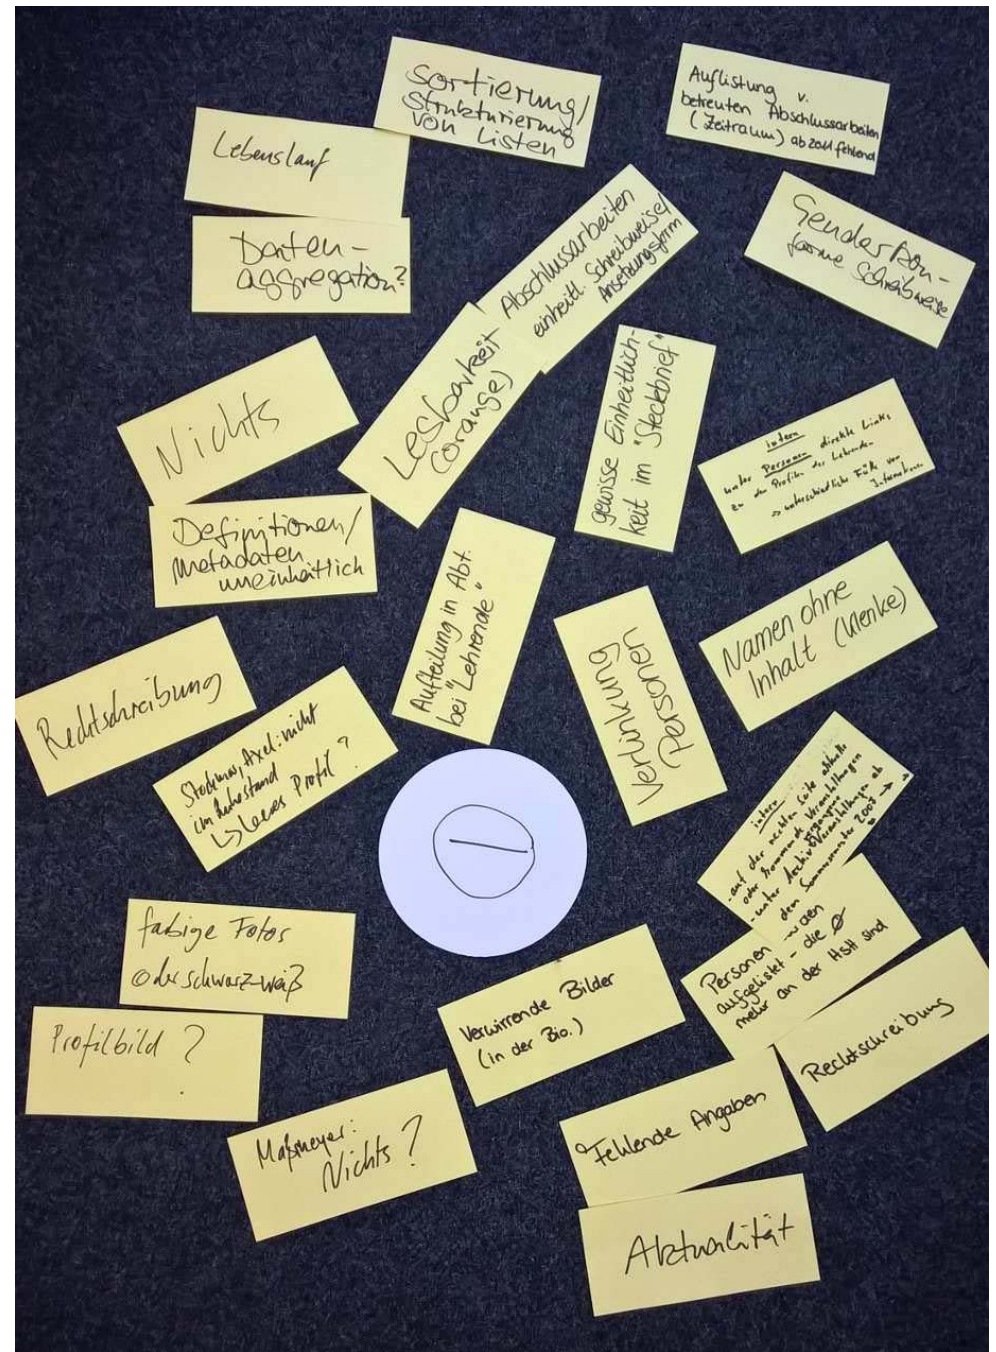 Sortierung/
Strukturierung
von Listen
Auflistung v.
betreuten Abschlussarbeiten
(Zeitraum) ab 2011 fehlend
Lebenslauf
Daten-
aggregation?
Abschlussarbeiten
einheitl. Schreibweise/
Ansetzungsform
Genderkon-
forme Schreibweise
Lesbarkeit
(orange)
Nichts
gewisse Einheitlich-
keit im "Steckbrief"
intern
unter Personen direkte Links
zu den Profilen der Lehrenden
=> unterschiedliche Fülle von
Informationen
Definitionen/
Metadaten
uneinheitlich
Aufteilung in Abt.
bei "Lehrende"
Verlinkung
Personen
Namen ohne
Inhalt (Menke)
Rechtschreibung
Axel: nicht
im Ruhestand
↳ leeres Profil?
intern
- auf der rechten Seite aktuelle
oder kommende Veranstaltungen
- unter Archiv vergangene
Veranstaltungen ab
dem Sommersemester 2008
Personen werden
aufgelistet - die Ø
mehr an der HsH sind
farbige Fotos
oder schwarz-weiß
Profilbild?
Verwirrende Bilder
(in der Bio.)
Rechtschreibung
Maßmeyer:
Nichts?
Fehlende Angaben
Aktualität